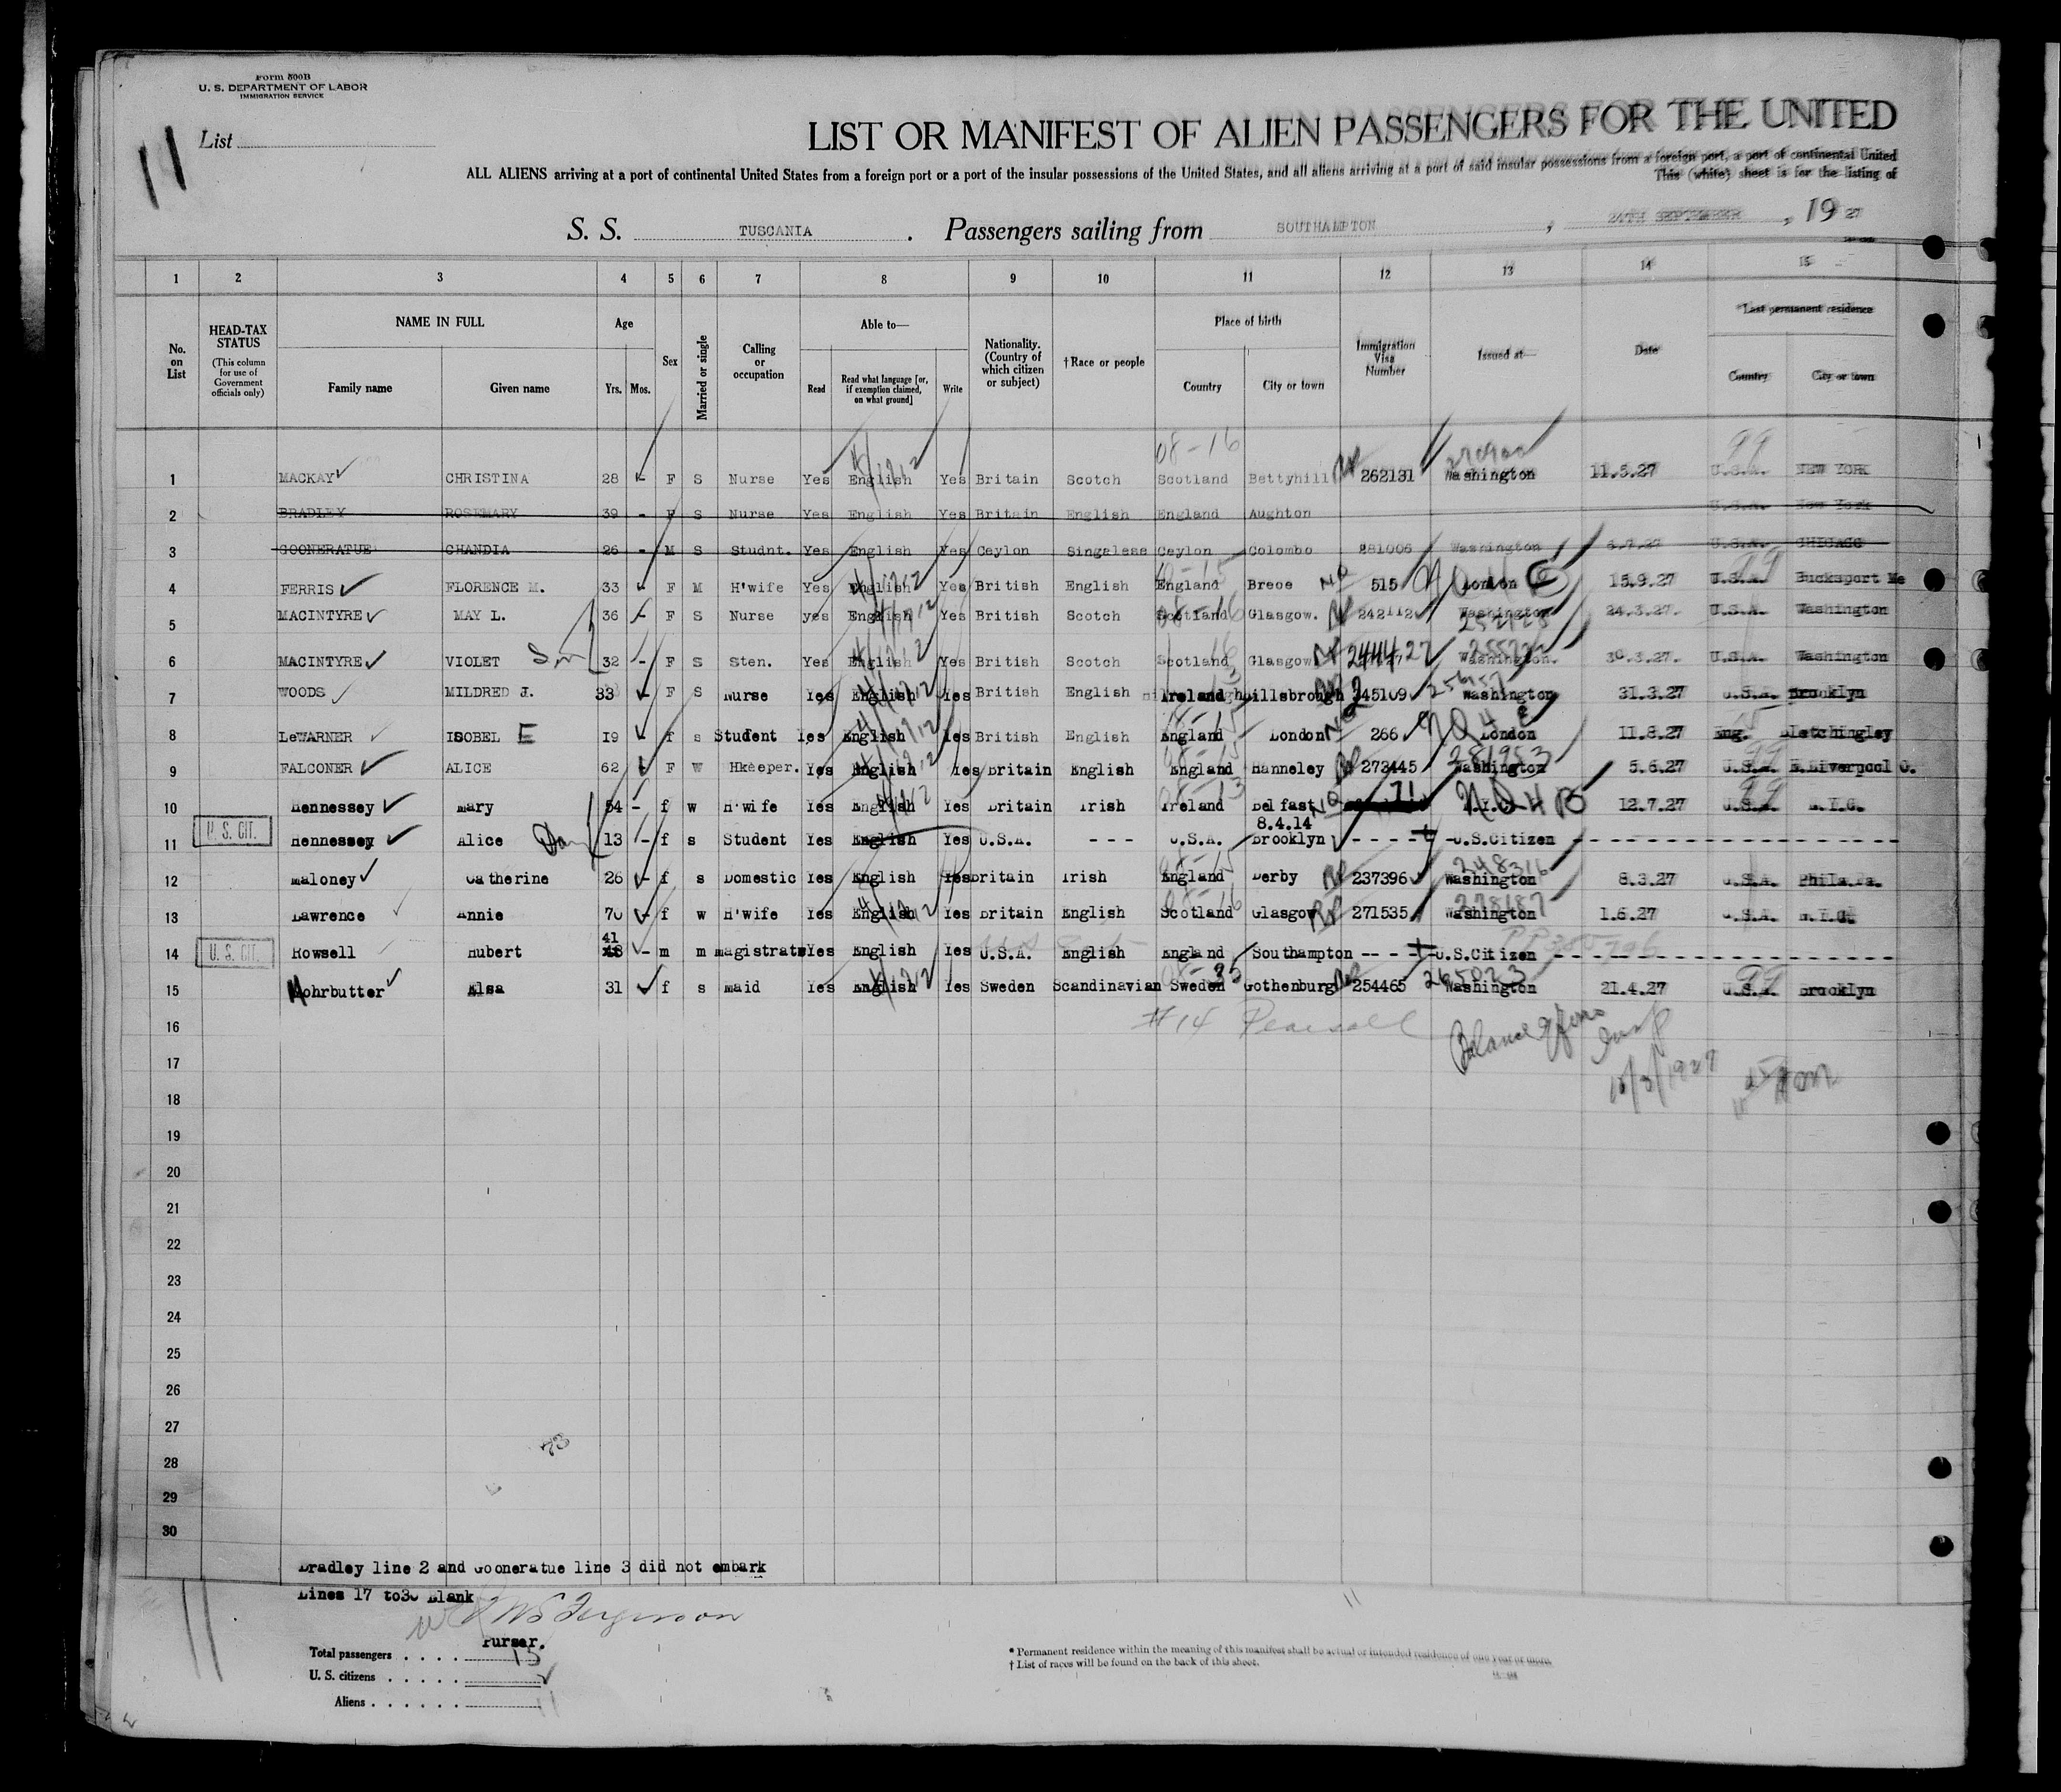 Form 500B
U. S. DEPARTMENT OF LABOR
IMMIGRATION SERVICE
11
List
LIST OR MANIFEST OF ALIEN PASSENGERS FOR THE UNITED
ALL ALIENS arriving at a port of continental United States from a foreign port or a port of the insular possessions of the United States, and all aliens arriving at a port of said insular possessions from a foreign port, a port of continental United
This (white) sheet is for the listing of
S. S. TUSCANIA . Passengers sailing from SOUTHAMPTON , 24TH SEPTEMBER , 19 27
1 2 3 4 5 6 7 8 9 10 11 12 13 14 15
No. on List
HEAD-TAX STATUS (This column for use of Government officials only)
NAME IN FULL Family name Given name
Age Yrs. Mos.
Sex
Married or single
Calling or occupation
Able to— Read Read what language [or, if exemption claimed, on what ground] Write
Nationality. (Country of which citizen or subject)
†Race or people
Place of birth Country City or town
Immigration Visa Number
Issued at—
Date
*Last permanent residence Country City or town
08-16 99
1 MACKAY CHRISTINA 28 F S Nurse Yes English Yes Britain Scotch Scotland Bettyhill 262131 Washington 11.5.27 U.S.A. NEW YORK
2 BRADLEY ROSEMARY 39 - F S Nurse Yes English Yes Britain English England Aughton U.S.A. New York
3 GOONERATUE CHANDIA 26 - M S Studnt. Yes English Yes Ceylon Singalese Ceylon Colombo 281006 Washington 6.7.27 U.S.A. CHICAGO
4 FERRIS FLORENCE M. 33 F M H'wife Yes English Yes British English England Breoe 515 London 15.9.27 U.S.A. Bucksport Me
5 MACINTYRE MAY L. 36 - F S Nurse yes English Yes British Scotch Scotland Glasgow. 242112 Washington 24.3.27. U.S.A. Washington
6 MACINTYRE VIOLET 32 - F S Sten. Yes English Yes British Scotch Scotland Glasgow 244427 Washington. 30.3.27. U.S.A. Washington
7 WOODS MILDRED J. 33 F S Nurse Yes English Yes British English Ireland hillsbrough 245109 Washington 31.3.27 U.S.A. Brooklyn
8 LeWARNER ISOBEL E 19 f s Student Yes English Yes British English England London 266 London 11.8.27 Eng. Bletchingley
9 FALCONER ALICE 62 F W Hkeeper. Yes English Yes Britain English England Hanneley 273445 281953 Washington 5.6.27 U.S.A. E.Liverpool O.
10 Hennessey Mary 54 - f w H'wife Yes English Yes Britain Irish Ireland Belfast 71 12.7.27 U.S.A. N.Y.C.
8.4.14
U. S. CIT. 11 Hennessey Alice 13 - f s Student Yes English Yes U.S.A. - - - U.S.A. Brooklyn - - - - -U.S.Citizen - - - - - - - - - - - - - - - -
12 Maloney Catherine 26 - f s Domestic Yes English Yes Britain Irish England Derby 237396 248316 Washington 8.3.27 U.S.A. Phila.Pa.
13 Lawrence Annie 70 - f w H'wife Yes English Yes Britain English Scotland Glasgow 271535 278187 Washington 1.6.27 U.S.A. N.Y.C.
41
U. S. CIT. 14 Rowsell Hubert 48 - m m magistrate Yes English Yes U.S.A. English England Southampton -- - - -U.S.Citizen - - - - - - - - - - - - - - - -
15 Mohrbutter Elsa 31 f s maid Yes English Yes Sweden Scandinavian Sweden Gothenburg 254465 265023 Washington 21.4.27 U.S.A. Brooklyn
16 #14 Pearsall
17
18 10/3/1927
19
20
21
22
23
24
25
26
27
73
28
29
30
Bradley line 2 and Gooneratue line 3 did not embark
Lines 17 to30 Blank
Ferguson
Purser.
Total passengers . . . . 13
U. S. citizens . . . . . 2
Aliens . . . . . . 11
11
* Permanent residence within the meaning of this manifest shall be actual or intended residence of one year or more.
† List of races will be found on the back of this sheet.